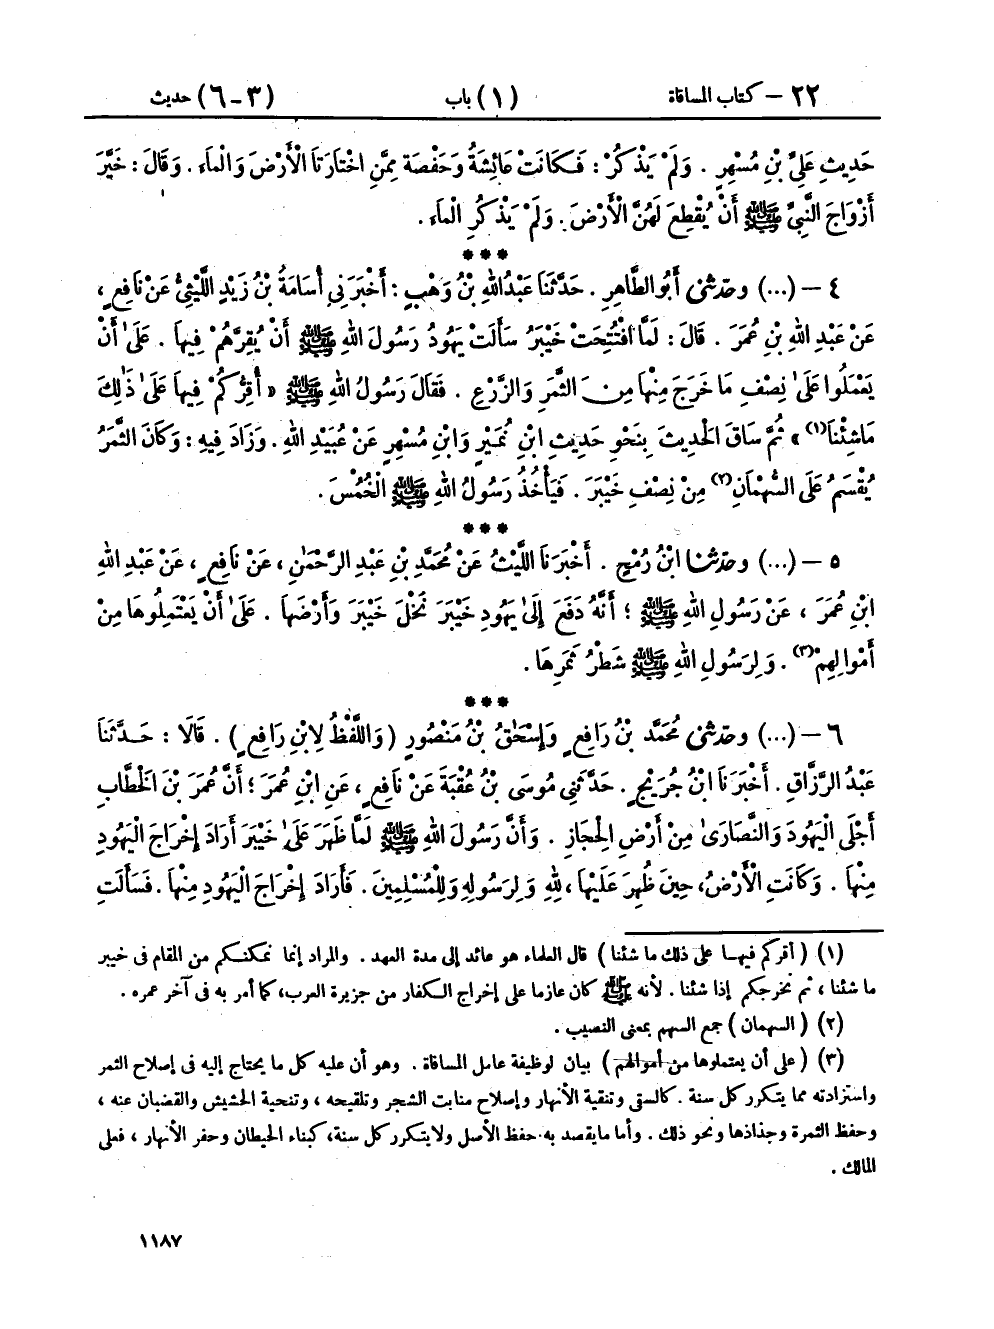 ٢٢ – كتاب المساقاة (١) باب (٣-٦) حديث
حَدِيثِ عَلِيِّ بْنِ مُسْهِرٍ . وَلَمْ يَذْكُرْ : فَكَانَتْ عَائِشَةُ وَحَفْصَةُ مِمَّنِ اخْتَارَتَا الْأَرْضَ وَالْمَاءَ . وَقَالَ : خَيَّرَ
أَزْوَاجَ النَّبِيِّ ﷺ أَنْ يُقْطِعَ لَهُنَّ الْأَرْضَ . وَلَمْ يَذْكُرِ الْمَاءَ .
***
٤ – (...) وحدثني أَبُو الطَّاهِرِ . حَدَّثَنَا عَبْدُ اللهِ بْنُ وَهْبٍ : أَخْبَرَنِي أُسَامَةُ بْنُ زَيْدٍ اللَّيْثِيُّ عَنْ نَافِعٍ ،
عَنْ عَبْدِ اللهِ بْنِ عُمَرَ . قَالَ : لَمَّا افْتُتِحَتْ خَيْبَرُ سَأَلَتْ يَهُودُ رَسُولَ اللهِ ﷺ أَنْ يُقِرَّهُمْ فِيهَا . عَلَىٰ أَنْ
يَعْمَلُوا عَلَىٰ نِصْفِ مَا خَرَجَ مِنْهَا مِنَ الثَّمَرِ وَالزَّرْعِ . فَقَالَ رَسُولُ اللهِ ﷺ « أُقِرُّكُمْ فِيهَا عَلَىٰ ذَٰلِكَ
مَا شِئْنَا(١) » ثُمَّ سَاقَ الْحَدِيثَ بِنَحْوِ حَدِيثِ ابْنِ نُمَيْرٍ وَابْنِ مُسْهِرٍ عَنْ عُبَيْدِ اللهِ . وَزَادَ فِيهِ : وَكَانَ الثَّمَرُ
يُقْسَمُ عَلَى السُّهْمَانِ(٢) مِنْ نِصْفِ خَيْبَرَ . فَيَأْخُذُ رَسُولُ اللهِ ﷺ الْخُمْسَ .
***
٥ – (...) وحدثنا ابْنُ رُمْحٍ . أَخْبَرَنَا اللَّيْثُ عَنْ مُحَمَّدِ بْنِ عَبْدِ الرَّحْمَٰنِ ، عَنْ نَافِعٍ ، عَنْ عَبْدِ اللهِ
ابْنِ عُمَرَ ، عَنْ رَسُولِ اللهِ ﷺ ؛ أَنَّهُ دَفَعَ إِلَىٰ يَهُودِ خَيْبَرَ نَخْلَ خَيْبَرَ وَأَرْضَهَا . عَلَىٰ أَنْ يَعْتَمِلُوهَا مِنْ
أَمْوَالِهِمْ(٣) . وَلِرَسُولِ اللهِ ﷺ شَطْرُ ثَمَرِهَا .
***
٦ – (...) وحدثني مُحَمَّدُ بْنُ رَافِعٍ وَإِسْحَٰقُ بْنُ مَنْصُورٍ ( وَاللَّفْظُ لِابْنِ رَافِعٍ ) . قَالَا : حَدَّثَنَا
عَبْدُ الرَّزَّاقِ . أَخْبَرَنَا ابْنُ جُرَيْجٍ . حَدَّثَنِي مُوسَى بْنُ عُقْبَةَ عَنْ نَافِعٍ ، عَنِ ابْنِ عُمَرَ ؛ أَنَّ عُمَرَ بْنَ الْخَطَّابِ
أَجْلَى الْيَهُودَ وَالنَّصَارَىٰ مِنْ أَرْضِ الْحِجَازِ . وَأَنَّ رَسُولَ اللهِ ﷺ لَمَّا ظَهَرَ عَلَىٰ خَيْبَرَ أَرَادَ إِخْرَاجَ الْيَهُودِ
مِنْهَا . وَكَانَتِ الْأَرْضُ ، حِينَ ظُهِرَ عَلَيْهَا ، لِلهِ وَلِرَسُولِهِ وَلِلْمُسْلِمِينَ . فَأَرَادَ إِخْرَاجَ الْيَهُودِ مِنْهَا . فَسَأَلَتِ
(١) ( أقركم فيها على ذلك ما شئنا ) قال العلماء هو عائد إلى مدة العهد . والمراد إنما نمكنكم من المقام فى خيبر
ما شئنا ، ثم نخرجكم إذا شئنا . لأنه ﷺ كان عازما على إخراج الكفار من جزيرة العرب ، كما أمر به فى آخر عمره .
(٢) ( السهمان ) جمع السهم بمعنى النصيب .
(٣) ( على أن يعتملوها من أموالهم ) بيان لوظيفة عامل المساقاة . وهو أن عليه كل ما يحتاج إليه فى إصلاح الثمر
واستزادته مما يتكرر كل سنة . كالسقى وتنقية الأنهار وإصلاح منابت الشجر وتلقيحه ، وتنحية الحشيش والقضبان عنه ،
وحفظ الثمرة وجذاذها ونحو ذلك . وأما ما يقصد به حفظ الأصل ولا يتكرر كل سنة ، كبناء الحيطان وحفر الأنهار ، فعلى
المالك .
١١٨٧